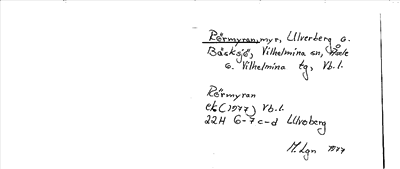 Rörmyran, myr, Ulverberg o.
Bäsksjö, Vilhelmina sn, Åsele
o. Vilhelmina tg, Vb.l.
Rörmyran
ek (1977) Vb.l.
22H 6-7 c-d Ulvoberg
M. Lgn 1977